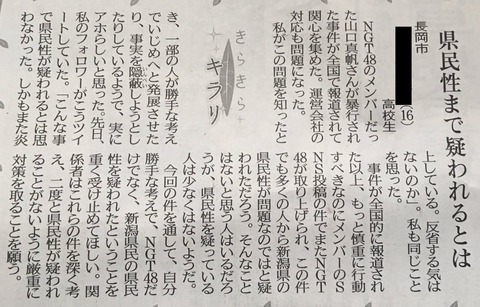 県民性まで疑われるとは
長岡市
高校生
(16)
きらきら
キラリ
NGT48のメンバーだっ
た山口真帆さんが暴行され
た事件が全国で報道されて
関心を集めた。運営会社の
対応も問題になった。
私がこの問題を知ったと
き、一部の人が勝手な考え
でいじめへと発展させた
り、事実を隠蔽しようとし
たりしているようで、実に
アホらしいと思った。先日、
私のフォロワーがこうツイ
ートしていた。「こんな事
で県民性が疑われるとは思
わなかった。しかもまた炎
上している。反省する気は
ないのか」。私も同じこと
を思った。
事件が全国的に報道され
た以上、もっと慎重に行動
すべきなのにメンバーのS
NS投稿の件でまたNGT
48が取り上げられ、この件
でも多くの人から新潟県の
県民性が問題なのではと疑
われただろう。そんなこと
はないと思う人はいるだろ
うが、県民性を疑っている
人は少なくはないようだ。
今回の件を通して、自分
勝手な考えで、NGT48だ
けでなく、新潟県民の県民
性を疑われたということを
重く受け止めてほしい。関
係者はこれらの件を深く考
え、二度と県民性が疑われ
ることがないように厳重に
対策を取ることを願う。